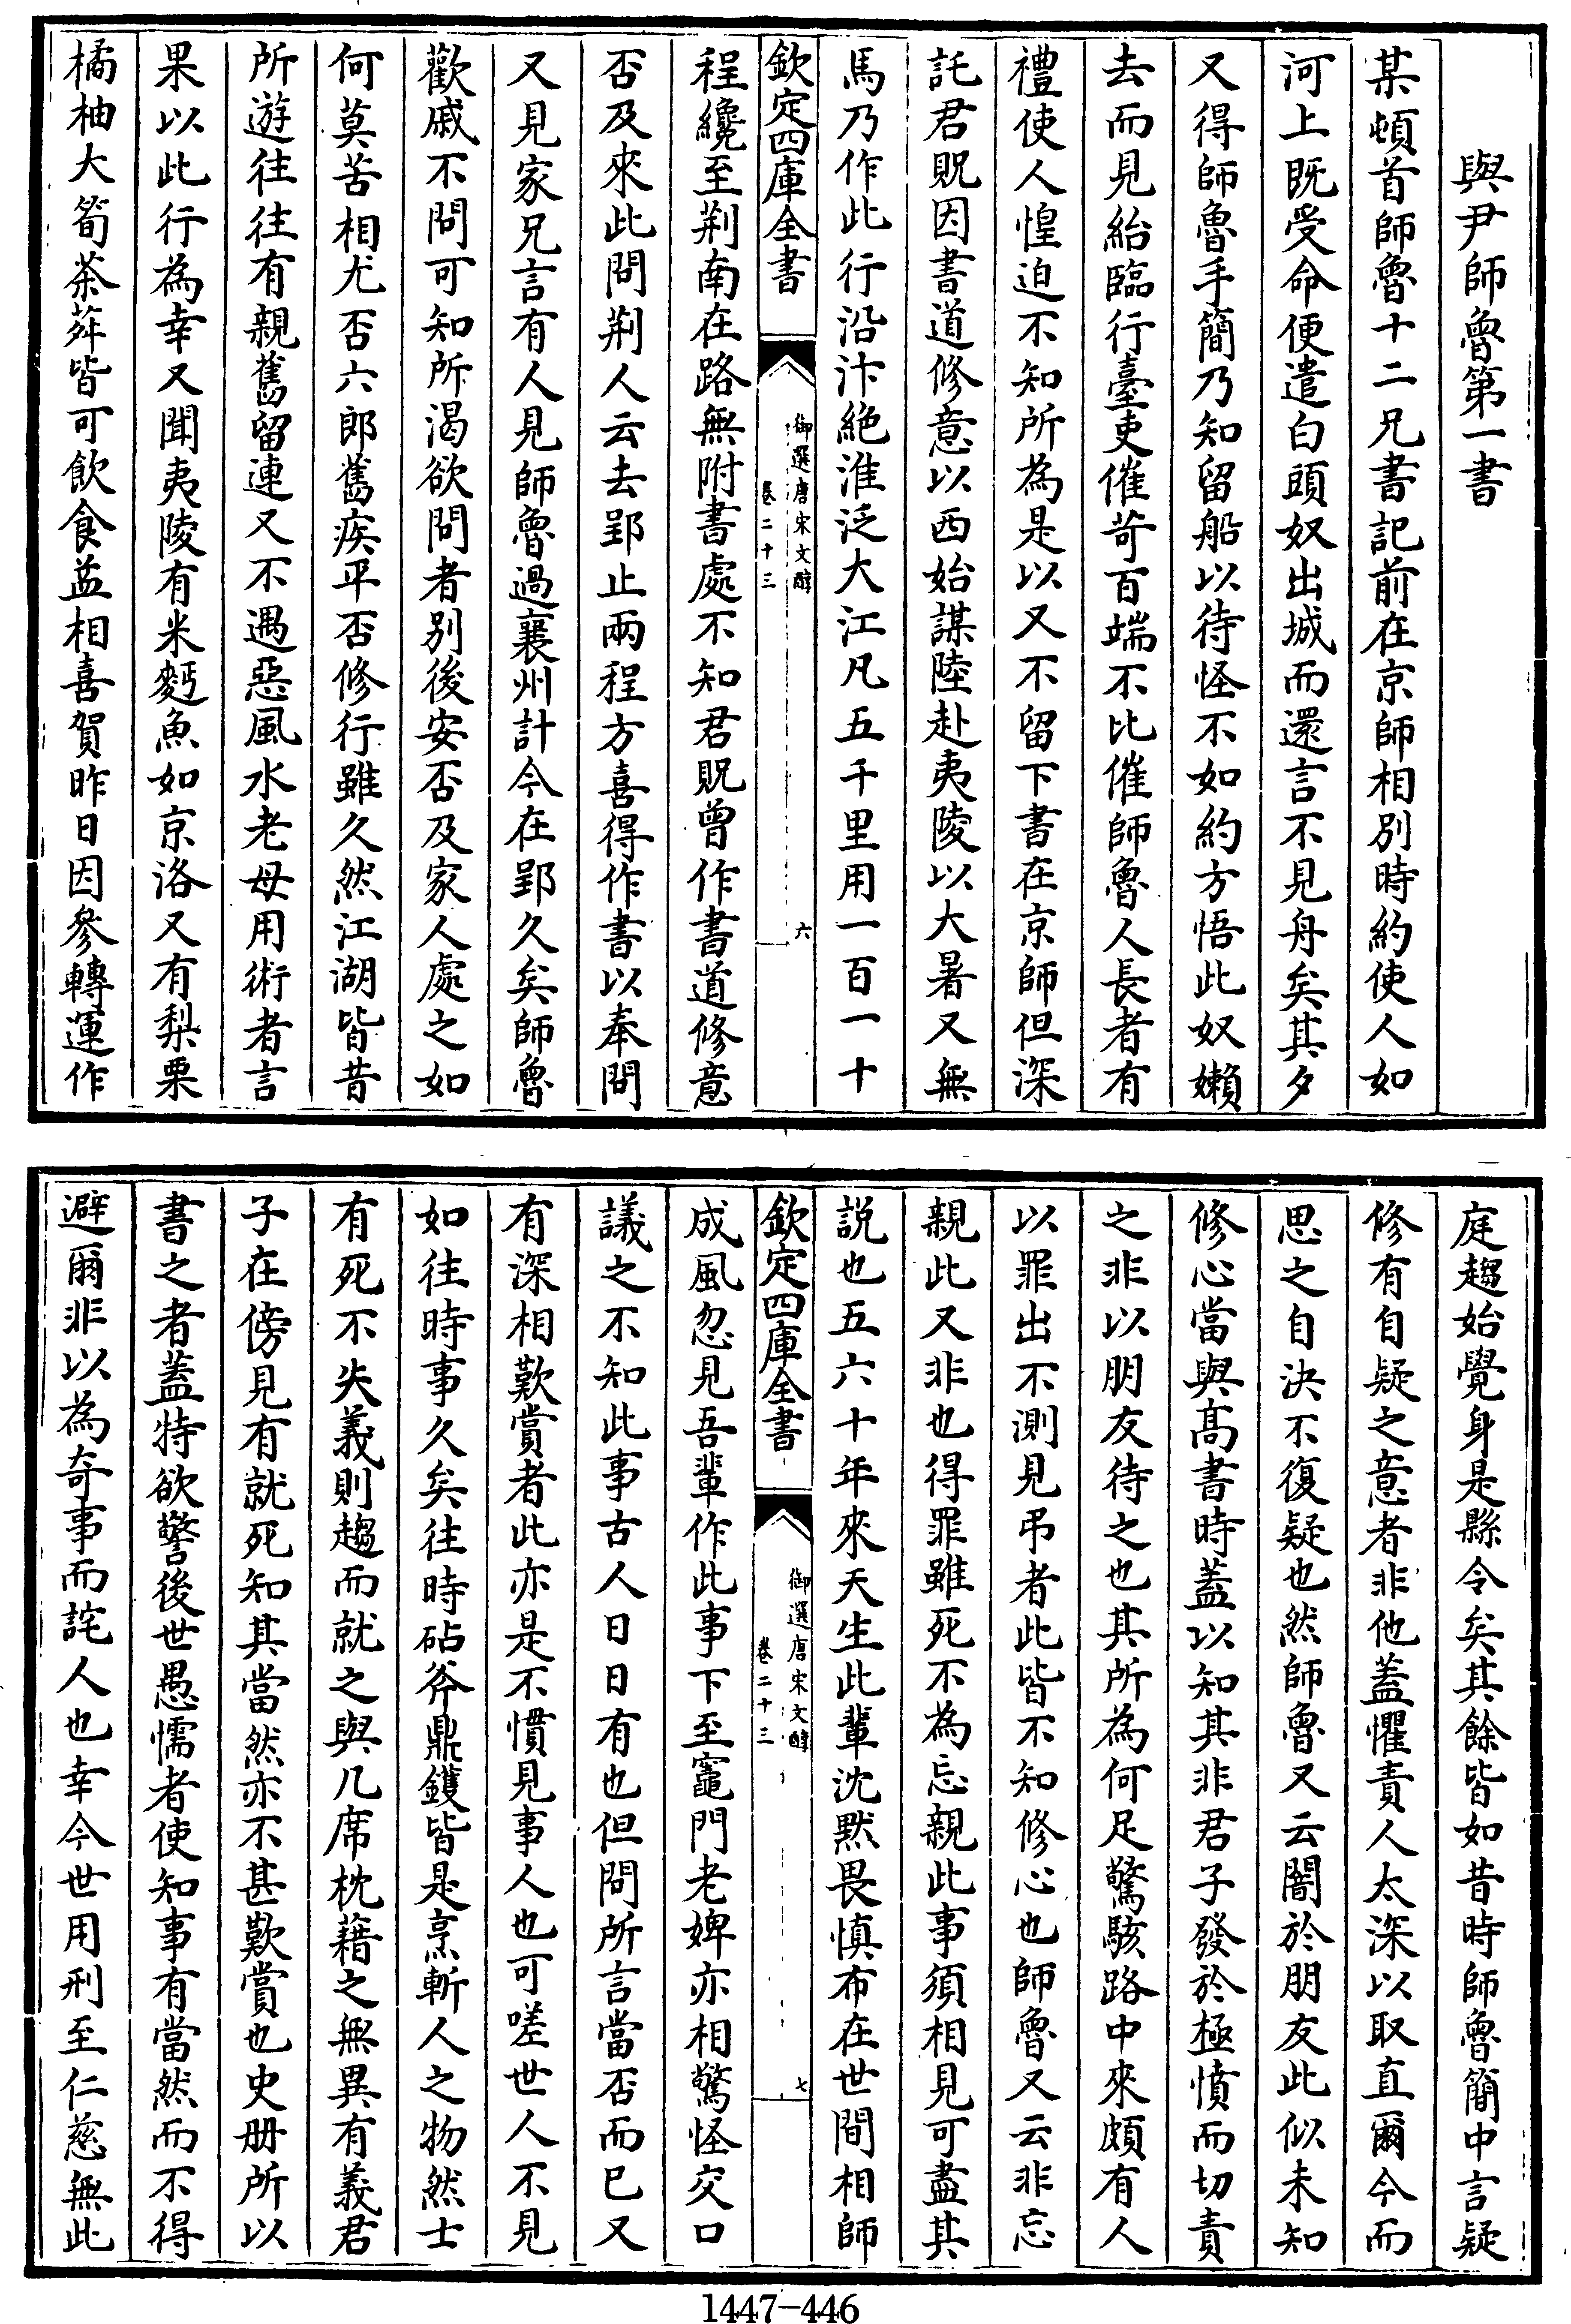 與尹師魯第一書
某頓首師魯十二兄書記前在京師相別時約使人如
河上既受命便遣白頭奴出城而還言不見舟矣其夕
又得師魯手簡乃知留船以待怪不如約方悟此奴嬾
去而見紿臨行臺吏催苛百端不比催師魯人長者有
禮使人惶迫不知所為是以又不留下書在京師但深
託君貺因書道修意以西始謀陸赴夷陵以大暑又無
馬乃作此行沿汴絶淮泛大江凡五千里用一百一十
欽定四庫全書
御選唐宋文醇
卷二十三
六
程纔至荆南在路無附書處不知君貺曾作書道修意
否及來此問荆人云去郢止兩程方喜得作書以奉問
又見家兄言有人見師魯過襄州計今在郢久矣師魯
歡戚不問可知所渴欲問者别後安否及家人處之如
何莫苦相尤否六郎舊疾平否修行雖久然江湖皆昔
所遊往往有親舊留連又不遇惡風水老母用術者言
果以此行為幸又聞夷陵有米麪魚如京洛又有梨栗
橘柚大筍茶荈皆可飲食益相喜賀昨日因參轉運作
庭趨始覺身是縣令矣其餘皆如昔時師魯簡中言疑
修有自疑之意者非他蓋懼責人太深以取直爾今而
思之自决不復疑也然師魯又云闇於朋友此似未知
修心當與髙書時蓋以知其非君子發於極憤而切責
之非以朋友待之也其所為何足驚駭路中來頗有人
以罪出不測見弔者此皆不知修心也師魯又云非忘
親此又非也得罪雖死不為忘親此事須相見可盡其
説也五六十年來天生此輩沈默畏慎布在世間相師
欽定四庫全書
御選唐宋文醇
卷二十三
七
成風忽見吾輩作此事下至竈門老婢亦相驚怪交口
議之不知此事古人日日有也但問所言當否而已又
有深相歎賞者此亦是不慣見事人也可嗟世人不見
如往時事久矣往時砧斧鼎鑊皆是烹斬人之物然士
有死不失義則趨而就之與几席枕藉之無異有義君
子在傍見有就死知其當然亦不甚歎賞也史册所以
書之者蓋特欲警後世愚懦者使知事有當然而不得
避爾非以為奇事而詫人也幸今世用刑至仁慈無此
1447-446